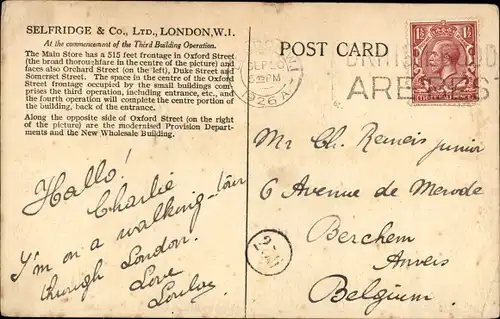 SELFRIDGE & Co., LTD., LONDON, W.1.
At the commencement of the Third Building Operation.
The Main Store has a 515 feet frontage in Oxford Street
(the broad thoroughfare in the centre of the picture) and
faces also Orchard Street (on the left), Duke Street and
Somerset Street. The space in the centre of the Oxford
Street frontage occupied by the small buildings com-
prises the third operation, including entrance, etc., and
the fourth operation will complete the centre portion of
the building, back of the entrance.
Along the opposite side of Oxford Street (on the right
of the picture) are the modernised Provision Depart-
ments and the New Wholesale Building.
Hallo!
Charlie
I'm on a walking-tour
through London.
Love
POST CARD
1926
BRITISH GOODS
ARE BEST
1½ 1½
Mr Ch. Remeis junior
6 Avenue de Merode
Berchem
Anvers
Belgium.